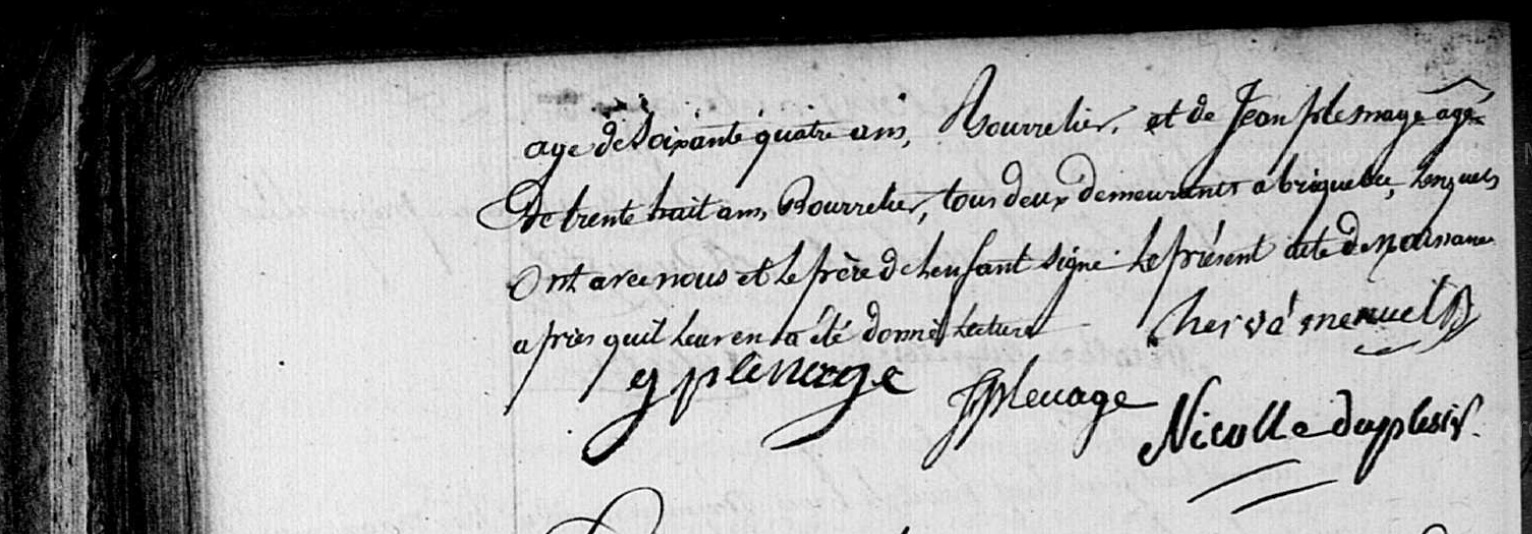 age de soixante quatre ans, Bourrelier, et de Jean plesnage âgé
De trente huit ans, Bourrelier, tous deux demeurants a briquebec, lesquels
Ont avec nous et le frère de l'enfant signé le présent acte de naissance
après quil leur en a été donné lecture hervé menuel
g plenage J plenage
Nicolle duplessis